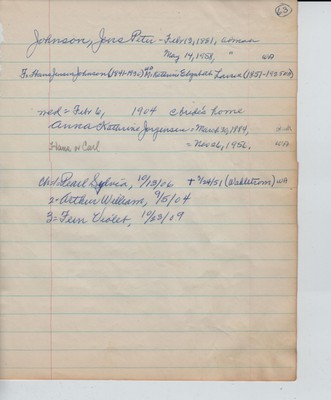 63
Johnson, Jens Peter - Feb 13, 1881,
May 14, 1958, " WA
Fr. Hans Jensen Johnson (1841-1932) Mo. Kathrine Elizabeth Larsen (1851-1925)
md = Feb 6, 1904 @ bride's home
Anna Kathrine Jorgensen: March 30, 1884,
Hans or Carl = Nov 26, 1956, WA
Ch: 1= Pearl Sylvia, 10/13/06 + 3/24/51 (Wahlstrom) WA
2= Arthur William, 9/5/04
3= Fern Violet, 10/23/09